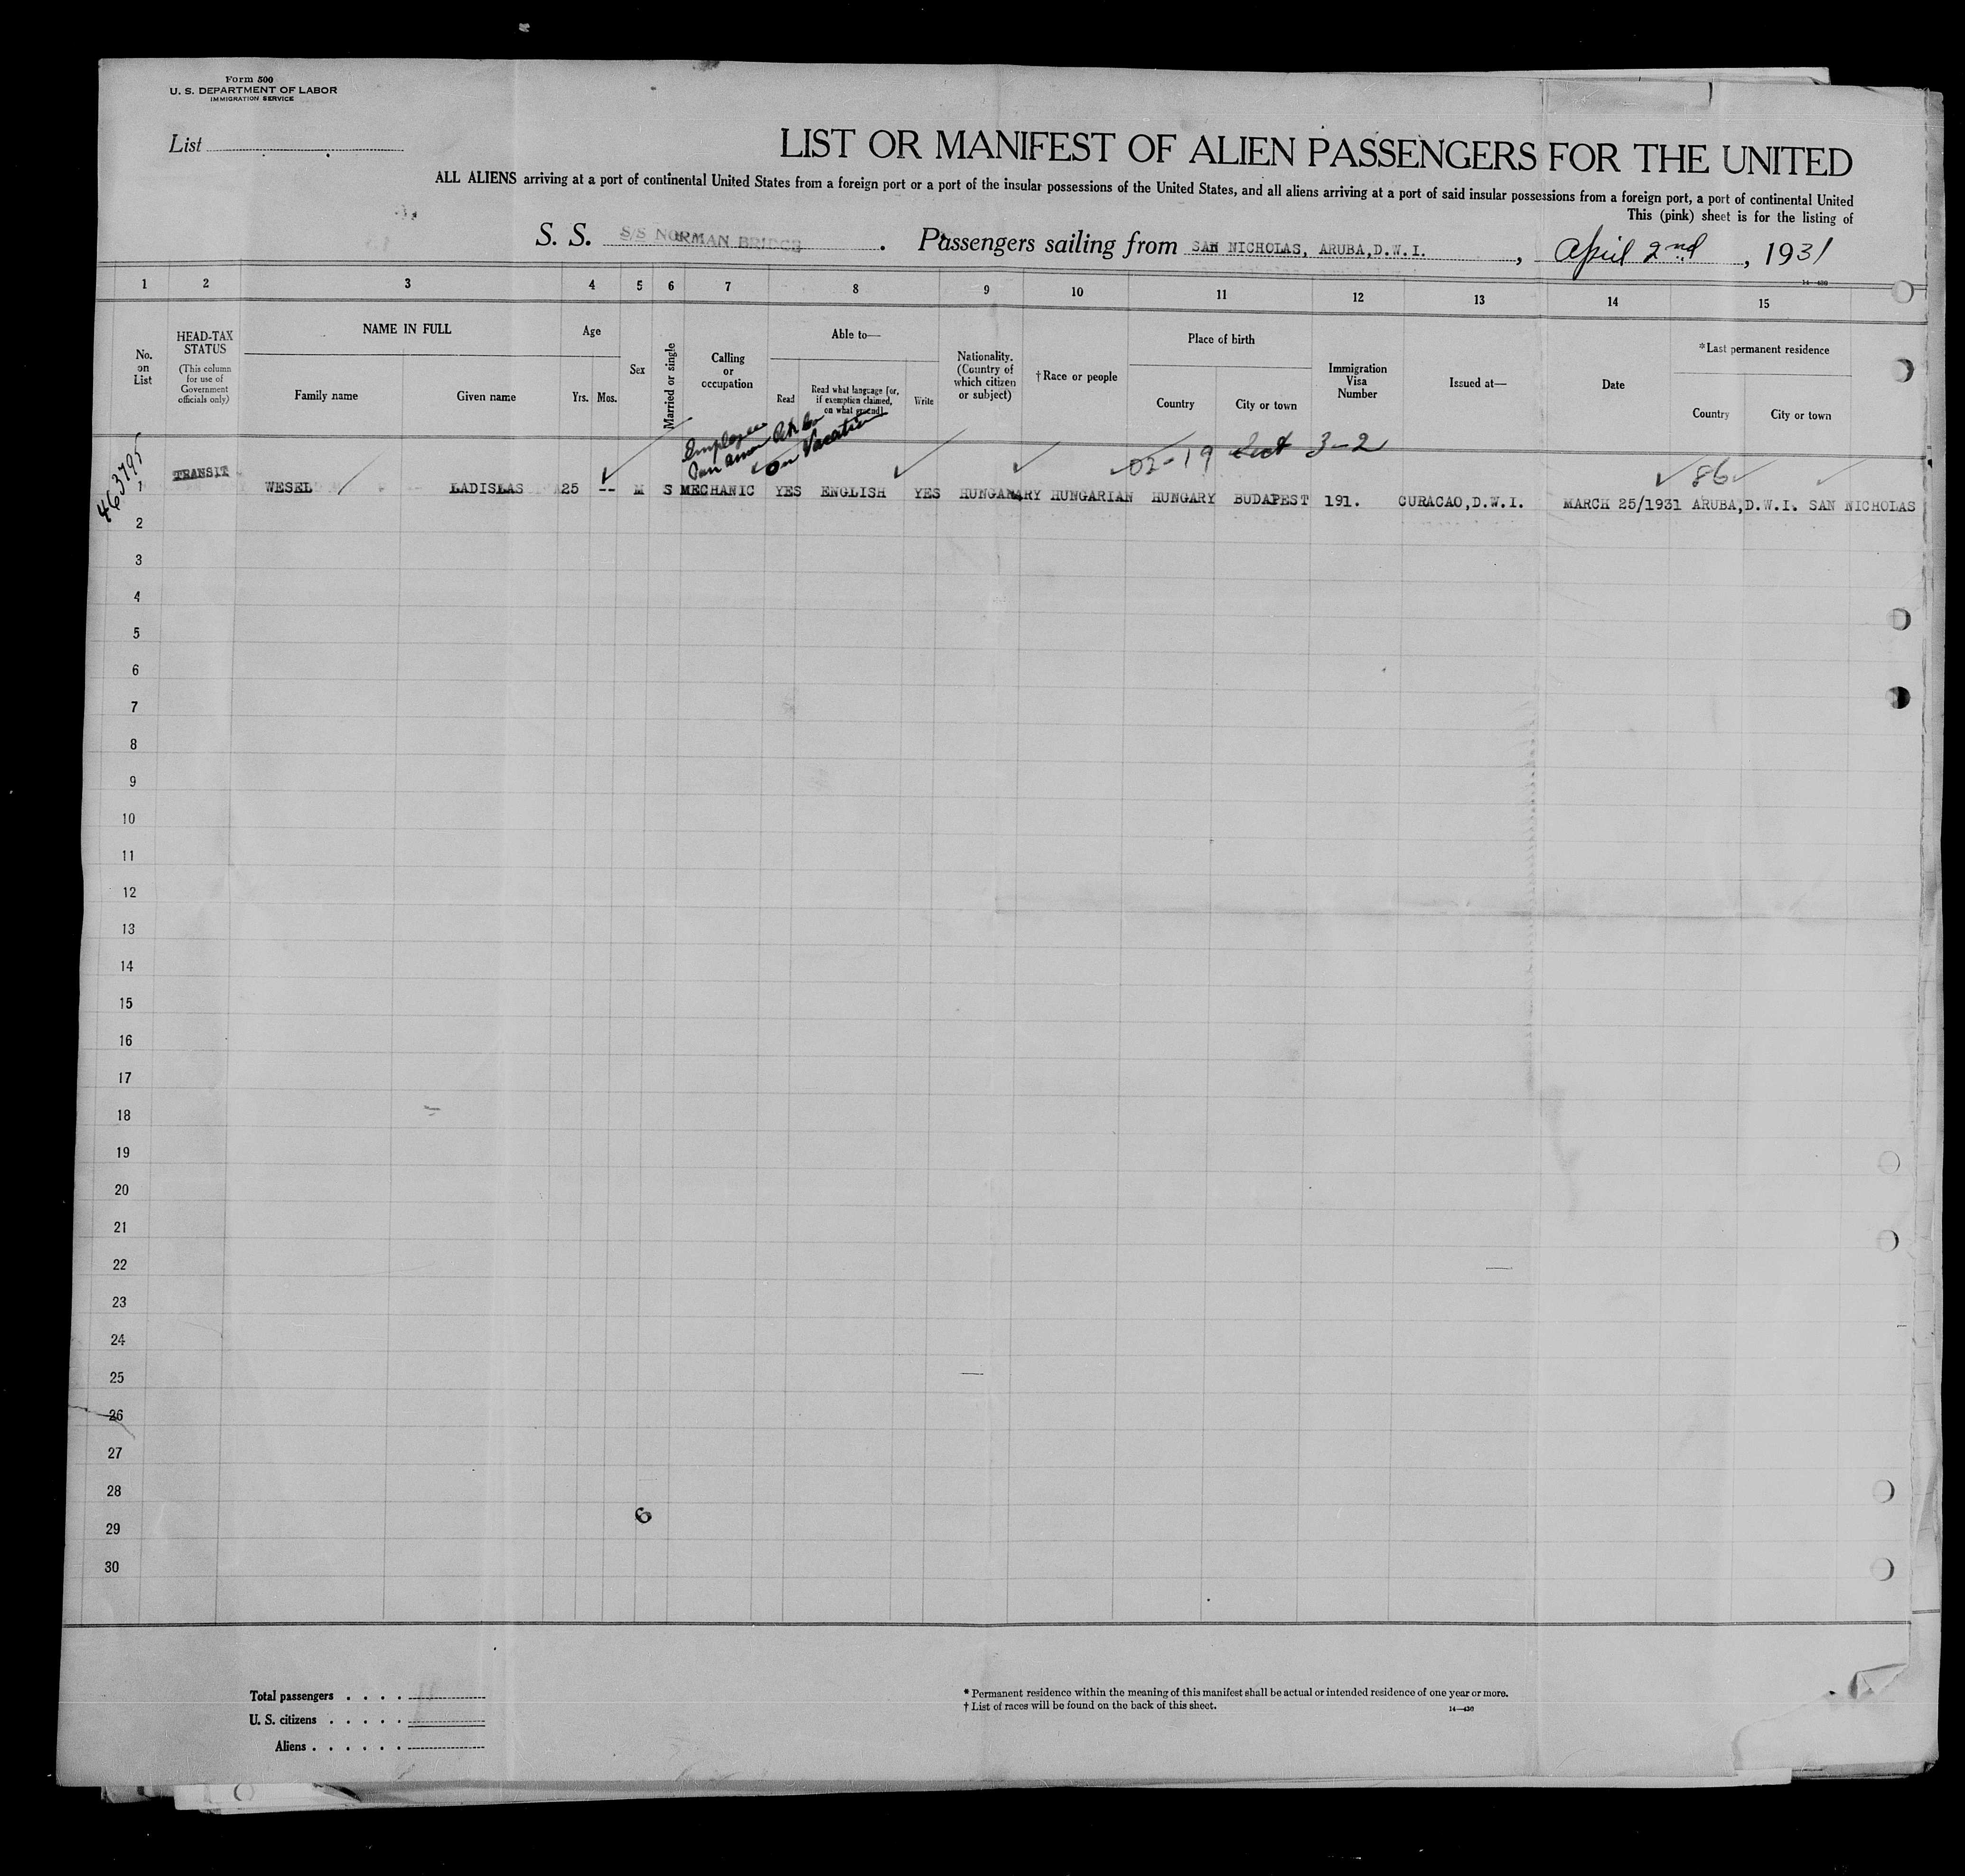 Form 500
U. S. DEPARTMENT OF LABOR
IMMIGRATION SERVICE
List
LIST OR MANIFEST OF ALIEN PASSENGERS FOR THE UNITED
ALL ALIENS arriving at a port of continental United States from a foreign port or a port of the insular possessions of the United States, and all aliens arriving at a port of said insular possessions from a foreign port, a port of continental United
This (pink) sheet is for the listing of
S. S. S/S NORMAN BRIDGE . Passengers sailing from SAN NICHOLAS, ARUBA,D.W.I. , April 2nd , 1931
14—430
1 2 3 4 5 6 7 8 9 10 11 12 13 14 15
No. on List
HEAD-TAX STATUS
(This column for use of Government officials only)
NAME IN FULL
Family name
Given name
Age
Yrs.
Mos.
Sex
Married or single
Calling or occupation
Able to—
Read
Read what language [or, if exemption claimed, on what ground]
Write
Nationality. (Country of which citizen or subject)
†Race or people
Place of birth
Country
City or town
Immigration Visa Number
Issued at—
Date
*Last permanent residence
Country
City or town
Employee
on Vacation
02-19 3-2
86
463795
TRANSIT
1 WESEL LADISLAS 25 -- M S MECHANIC YES ENGLISH YES HUNGARY HUNGARIAN HUNGARY BUDAPEST 191. CURACAO,D.W.I. MARCH 25/1931 ARUBA,D.W.I. SAN NICHOLAS
2
3
4
5
6
7
8
9
10
11
12
13
14
15
16
17
18
19
20
21
22
23
24
25
26
27
28
6
29
30
Total passengers . . . .
U. S. citizens . . . . .
Aliens . . . . . .
* Permanent residence within the meaning of this manifest shall be actual or intended residence of one year or more.
† List of races will be found on the back of this sheet.
14—430